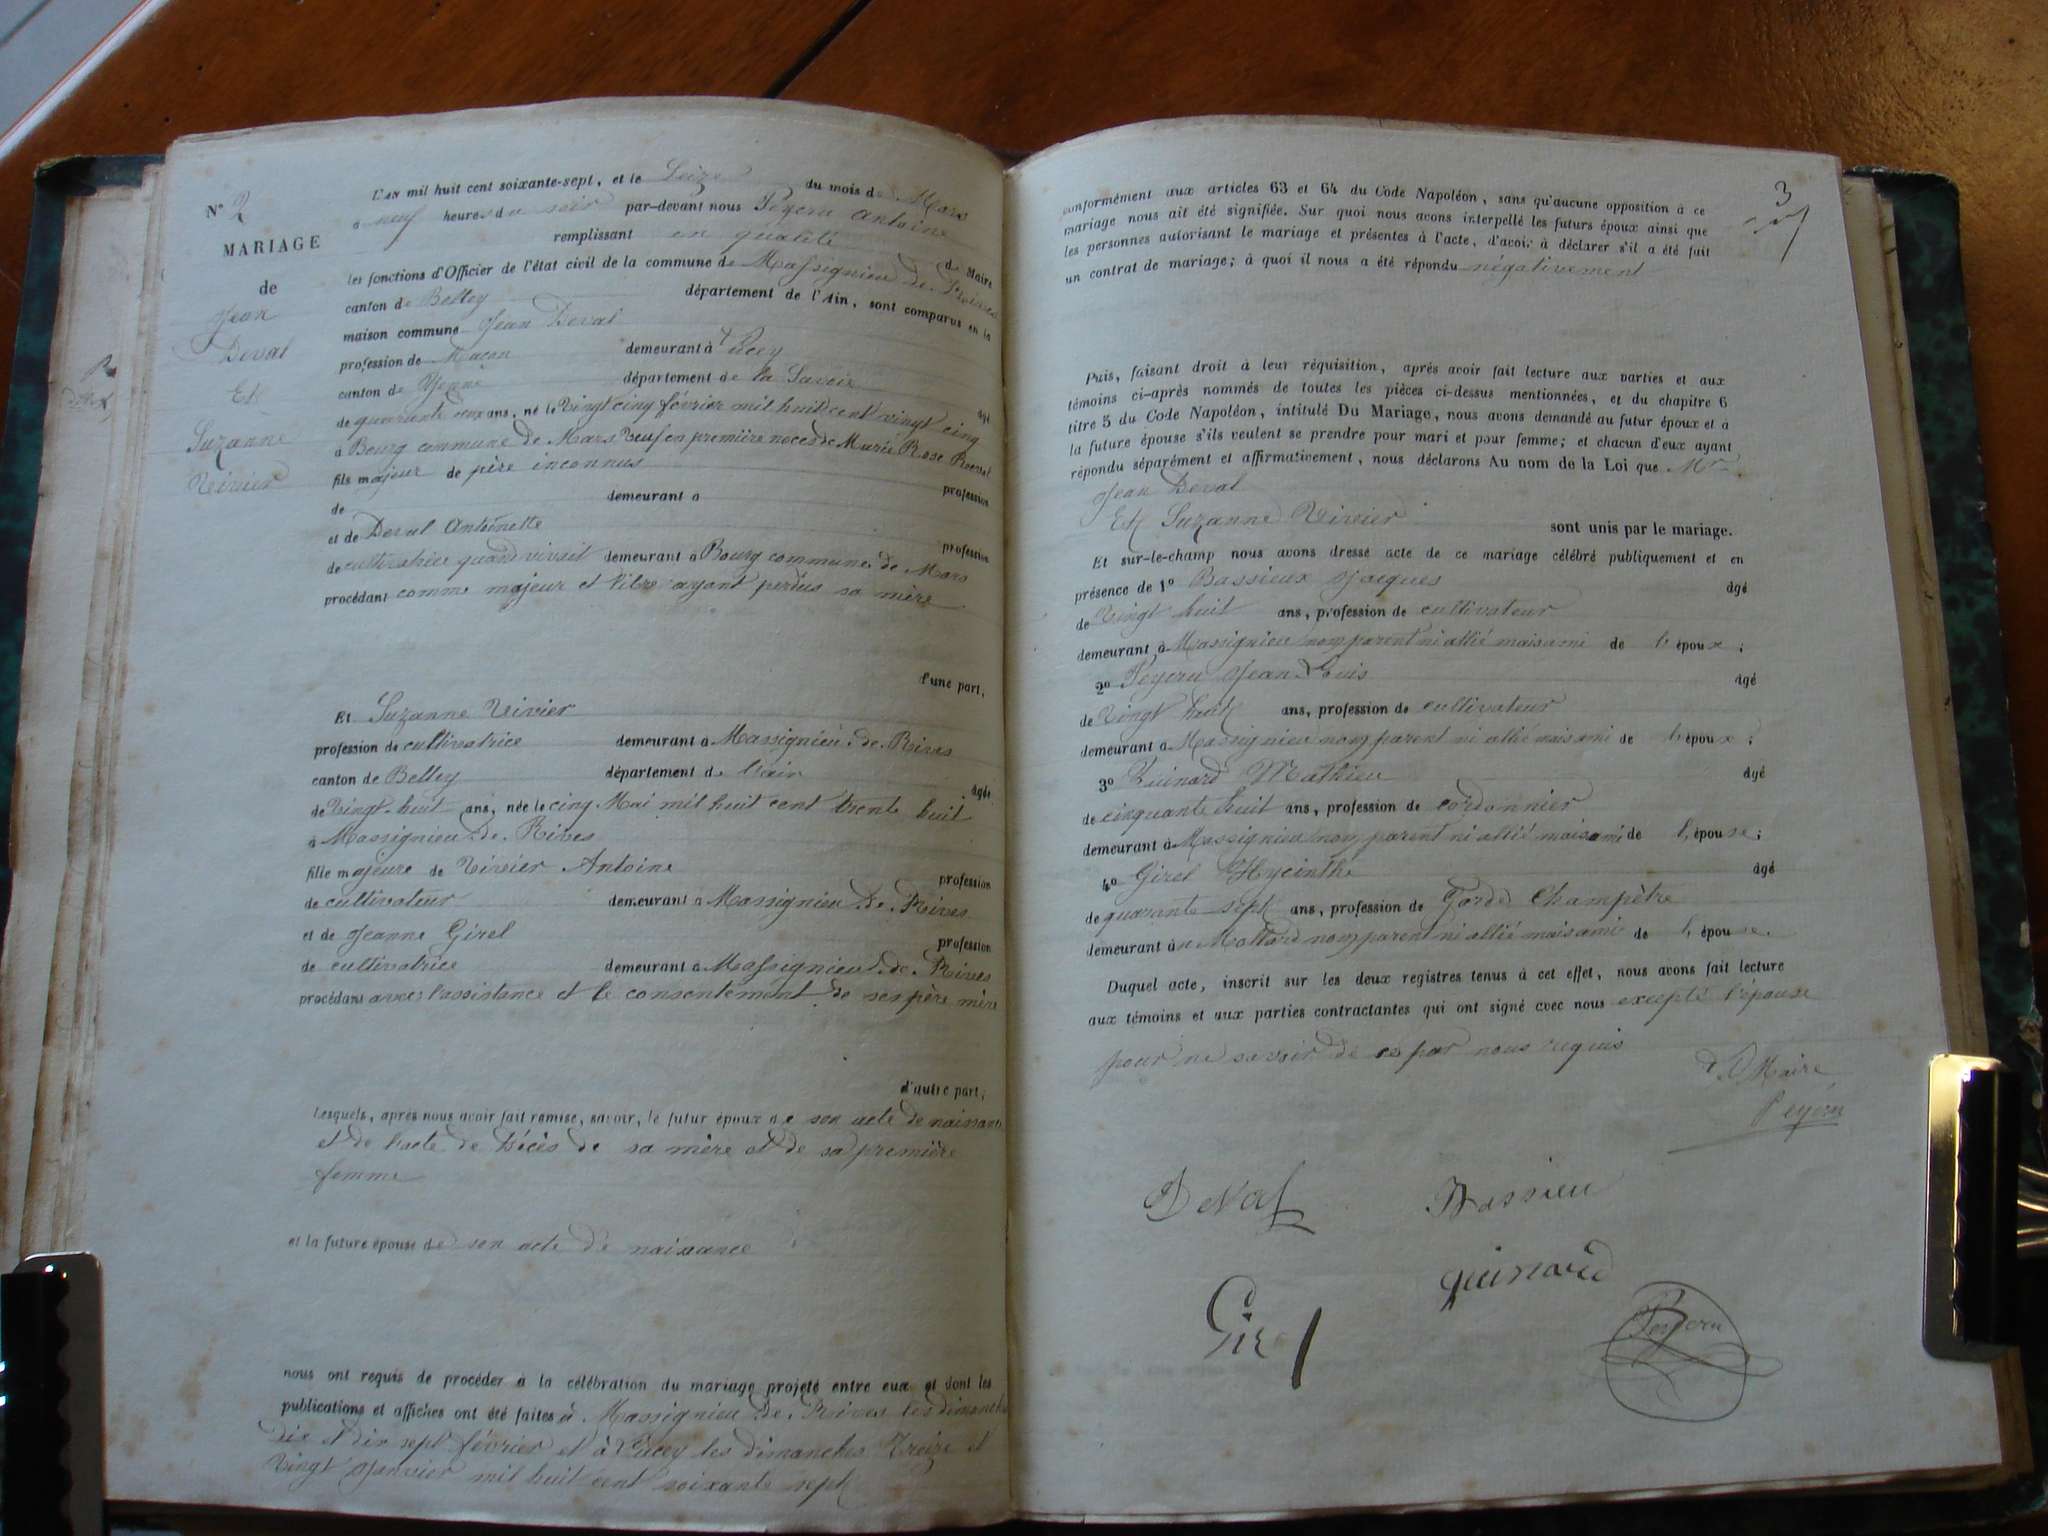 N° 2
MARIAGE
de
Jean
Deval
Et
Suzanne
Vivier
L'an mil huit cent soixante-sept, et le Seize du mois de Mars
à neuf heures du soir par-devant nous Peyern Antoine
remplissant en qualité de Maire
les fonctions d'Officier de l'état civil de la commune de Massignieu de Rives
canton de Belley département de l'Ain, sont comparus en la
maison commune Jean Deval
profession de Maçon demeurant à Lucey
canton de Yenne département de la Savoie âgé
de quarante deux ans, né le Vingt cinq février mil huit cent vingt cinq
à Bourg commune de Mars Veuf en première noces de Marie Rose
fils majeur de père inconnus profession
de demeurant à
et de Deval Antoinette profession
de cultivatrice quand vivait demeurant à Bourg commune de Mars
procédant comme majeur et libre ayant perdus sa mère
d'une part,
Et Suzanne Vivier
profession de cultivatrice demeurant à Massignieu de Rives
canton de Belley département de l'ain âgée
de Vingt huit ans, née le cinq Mai mil huit cent trente huit
à Massignieu de Rives
fille majeure de Vivier Antoine profession
de cultivateur demeurant à Massignieu de Rives
et de Jeanne Girel profession
de cultivatrice demeurant à Massignieu de Rives
procédant avec l'assistance et le consentement de ses père mère
d'autre part;
Lesquels, après nous avoir fait remise, savoir, le futur époux de son acte de naissance
et de l'acte de décès de sa mère et de sa première
femme
et la future épouse de son acte de naissance
nous ont requis de procéder à la célébration du mariage projeté entre eux et dont les
publications et affiches ont été faites à Massignieu de Rives les dimanches
dix et dix sept février et à Lucey les dimanches Treize et
Vingt Janvier mil huit cent soixante sept
3
conformément aux articles 63 et 64 du Code Napoléon, sans qu'aucune opposition à ce
mariage nous ait été signifiée. Sur quoi nous avons interpellé les futurs époux ainsi que
les personnes autorisant le mariage et présentes à l'acte, d'avoir à déclarer s'il a été fait
un contrat de mariage; à quoi il nous a été répondu négativement
Puis, faisant droit à leur réquisition, après avoir fait lecture aux parties et aux
témoins ci-après nommés de toutes les pièces ci-dessus mentionnées, et du chapitre 6
titre 5 du Code Napoléon, intitulé Du Mariage, nous avons demandé au futur époux et à
la future épouse s'ils veulent se prendre pour mari et pour femme; et chacun d'eux ayant
répondu séparément et affirmativement, nous déclarons Au nom de la Loi que Mr
Jean Deval
Et Suzanne Vivier sont unis par le mariage.
Et sur-le-champ nous avons dressé acte de ce mariage célébré publiquement et en
présence de 1° Bassieux Jacques âgé
de Vingt huit ans, profession de cultivateur
demeurant à Massignieu nom parent ni allié mais ami de l'époux;
2° Peyern Jean Louis âgé
de Vingt huit ans, profession de cultivateur
demeurant à Massignieu nom parent ni allié mais ami de l'époux;
3° Guinard Mathieu âgé
de cinquante huit ans, profession de cordonnier
demeurant à Massignieu nom parent ni allié mais ami de l'épouse;
4° Girel Hycinthe âgé
de quarante sept ans, profession de Garde Champêtre
demeurant à Mottard nom parent ni allié mais ami de l'épouse.
Duquel acte, inscrit sur les deux registres tenus à cet effet, nous avons fait lecture
aux témoins et aux parties contractantes qui ont signé avec nous excepté l'épouse
pour ne savoir de ce par nous requis
Maire
Peyern
Deval Bassieu
guinard
Girel
Peyern